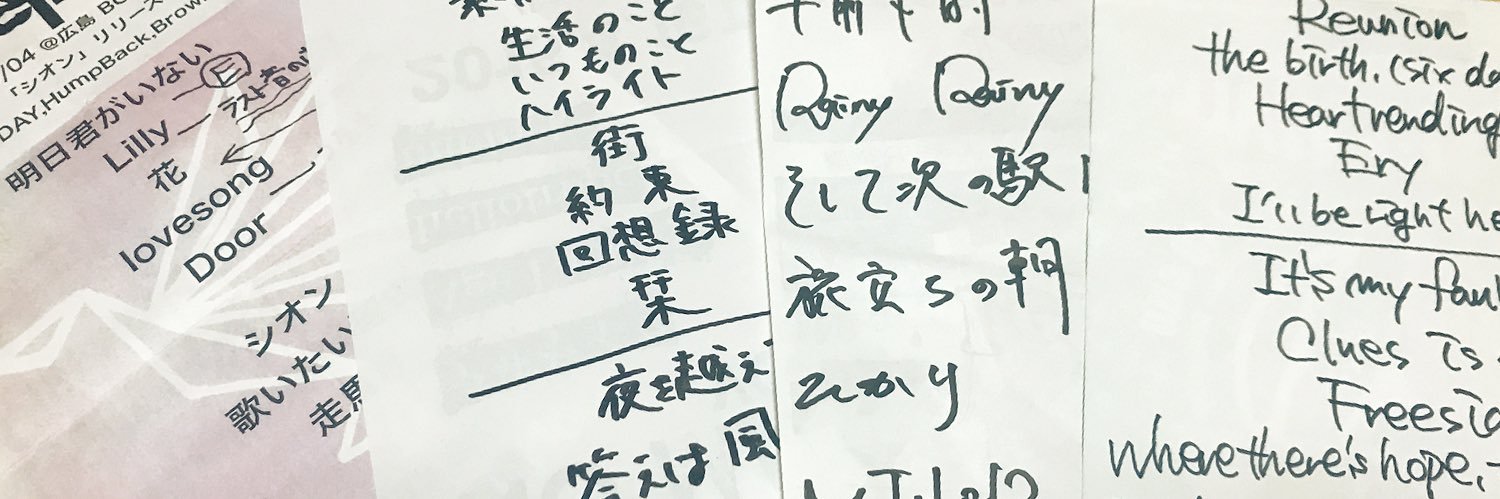 /04 @広島
「シオン」リリース
DAY,HumpBack,Brown
明日君がいない
E
Lilly
ラスト音
花
lovesong
Door
シオン
歌いたい
走馬
生活のこと
いつものこと
ハイライト
街
約束
回想録
栞
夜を越え
答えは風
Rainy Rainy
そして次の駅
旅立ちの朝
ひかり
Reunion
the birth. (six da
Heartrending
Ery
I'll be right he
It's my faul
Clues is
Freesia
where there's hope,